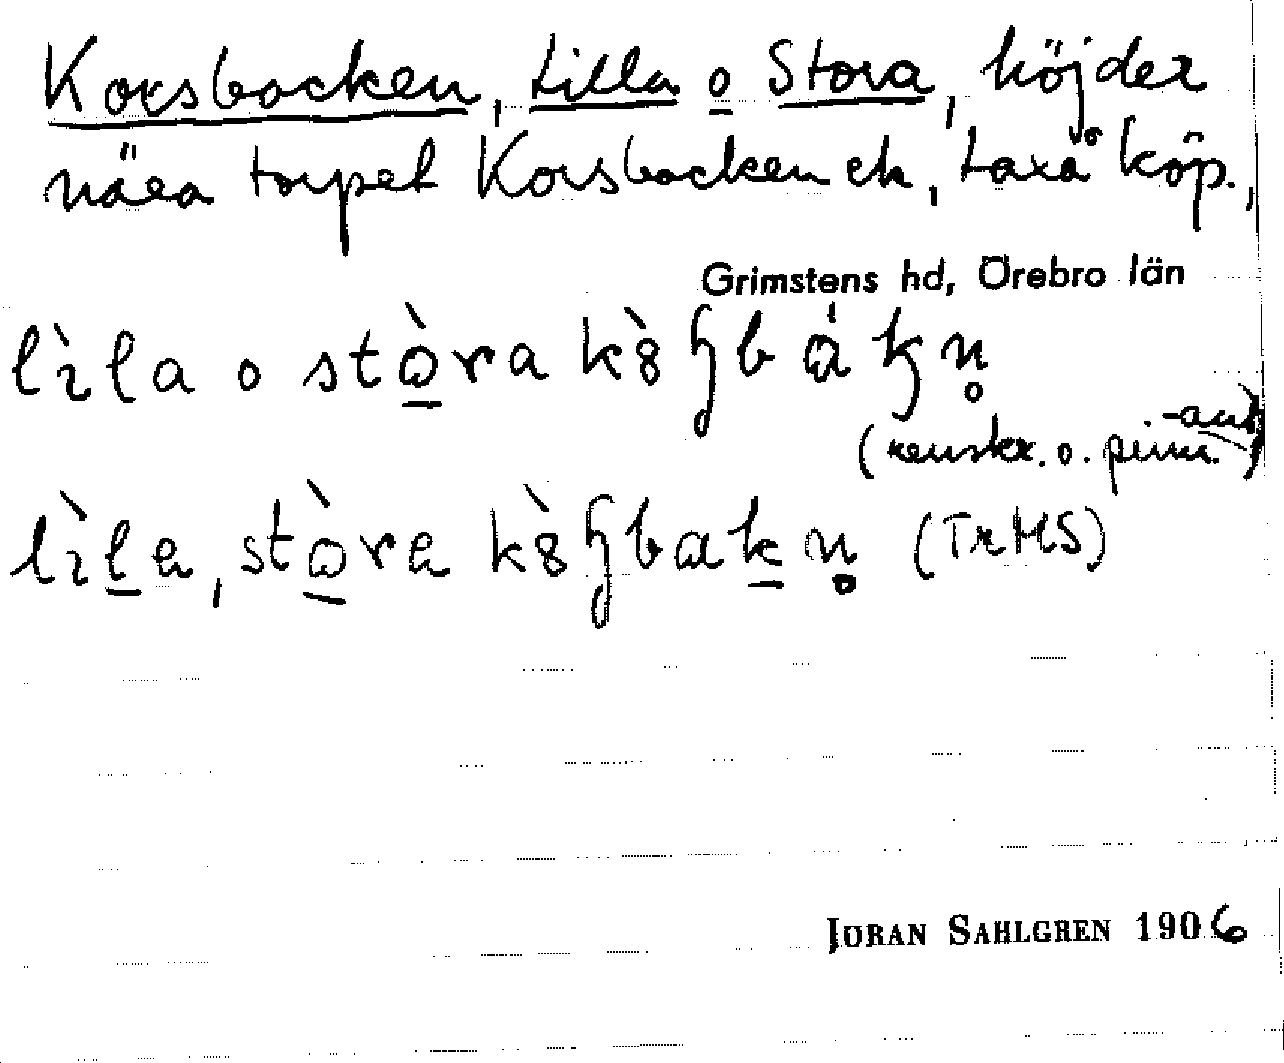 Korsbacken, Lilla o Stora, höjder
nära torpet Korsbacken etc, Laxå köp.,
Grimstens hd, Örebro län
lìla o stòra kò̀ʂbákn̥
(renskr. o. prim. -ant)
lìla, stòra kòʂbakn̥ (TrHS)
JÖRAN SAHLGREN 1906